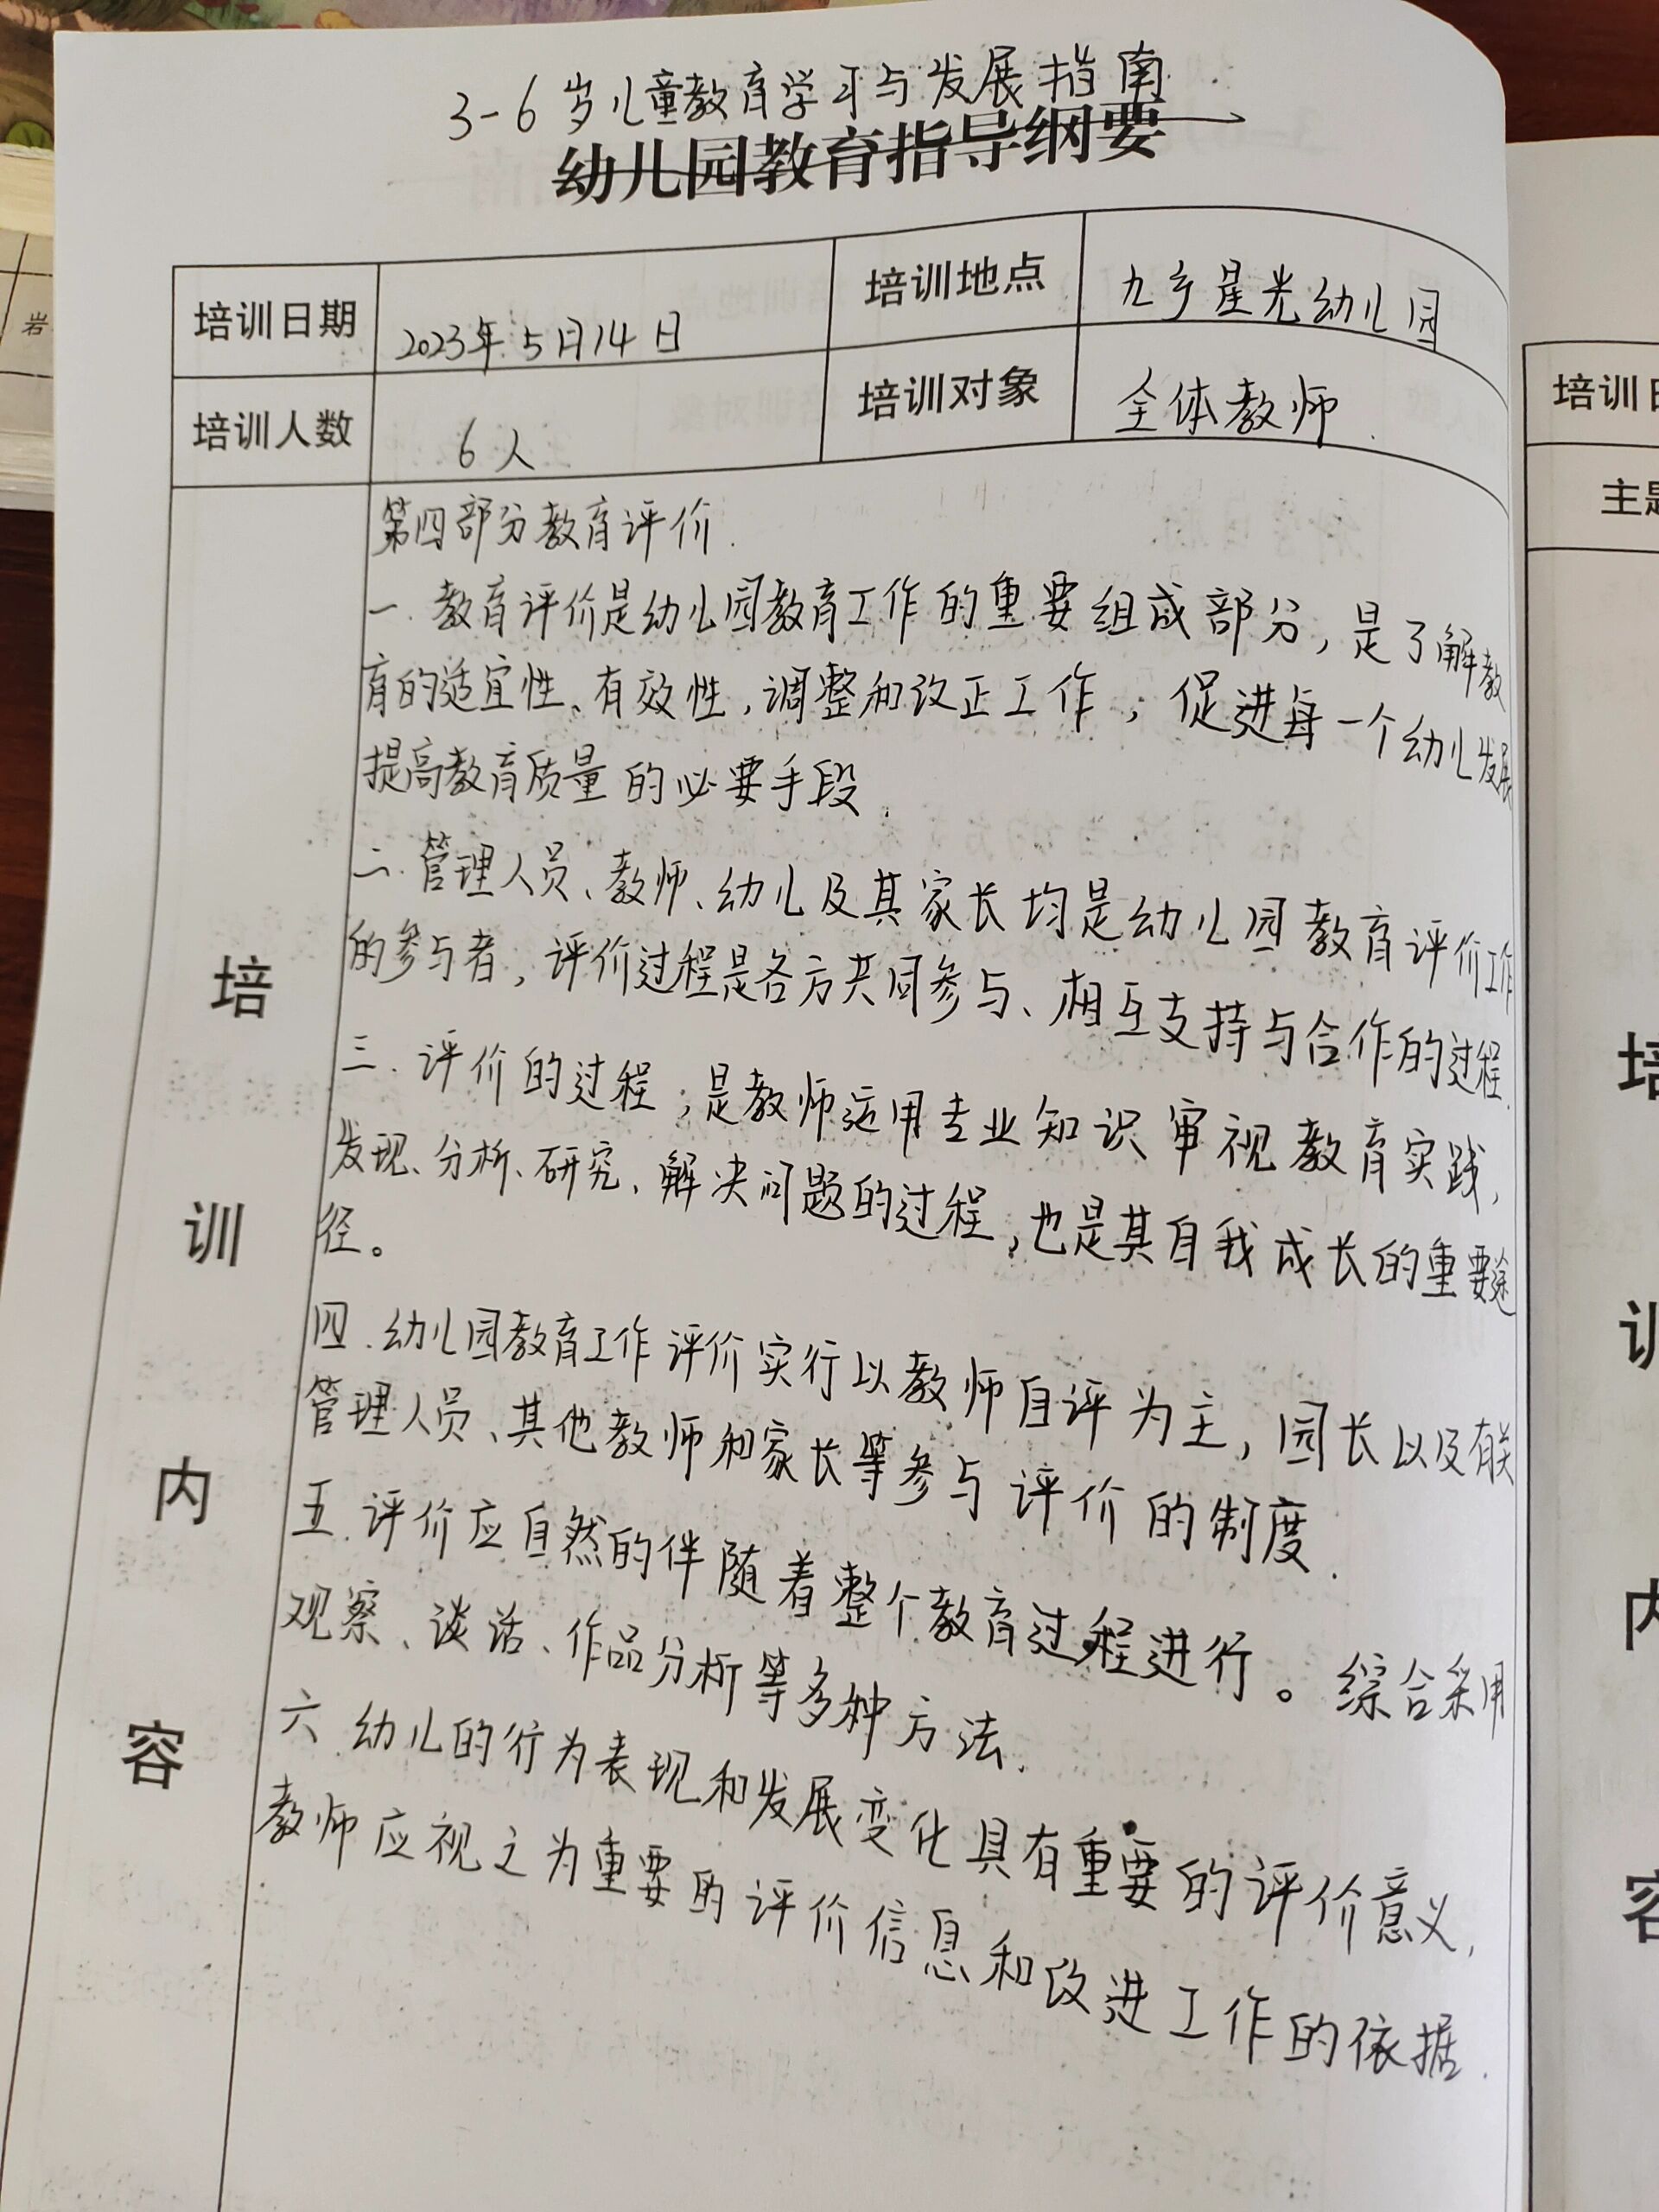 3-6岁儿童教育学习与发展指南
幼儿园教育指导纲要
培训日期 2023年5月14日 培训地点 九乡星光幼儿园
培训人数 6人 培训对象 全体教师.
第四部分教育评价.
一.教育评价是幼儿园教育工作的重要组成部分,是了解教
育的适宜性、有效性,调整和改正工作,促进每一个幼儿发展
提高教育质量的必要手段.
二.管理人员、教师、幼儿及其家长均是幼儿园教育评价工作
的参与者,评价过程是各方共同参与、相互支持与合作的过程.
三.评价的过程,是教师运用专业知识审视教育实践,
发现、分析、研究、解决问题的过程,也是其自我成长的重要途
径。
四.幼儿园教育工作评价实行以教师自评为主,园长以及有关
管理人员、其他教师和家长等参与评价的制度.
五.评价应自然的伴随着整个教育过程进行。综合采用
观察、谈话、作品分析等多种方法.
六 幼儿的行为表现和发展变化具有重要的评价意义,
教师应视之为重要的评价信息和改进工作的依据.
培
训
内
容
岩
培训日
主题
培
训
内
容